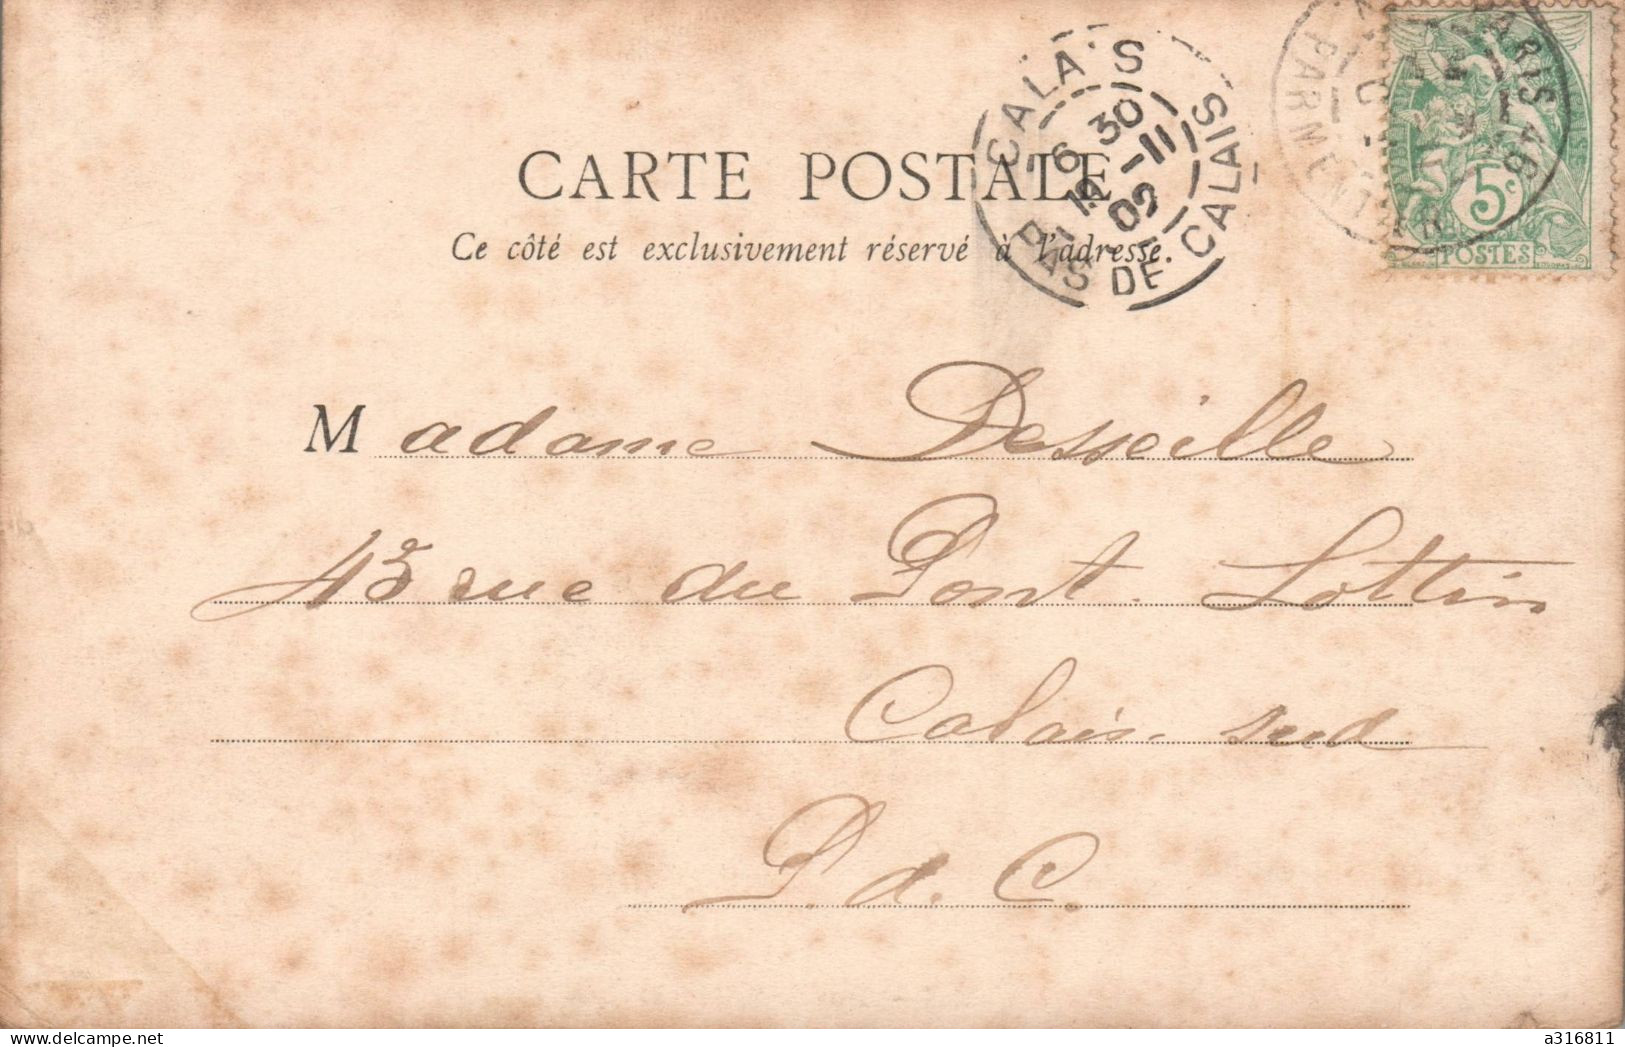 CALAIS
6 30
19 -11
02
PAS DE CALAIS
PARIS 46
PARMENTIER
5c
POSTES
CARTE POSTALE
Ce côté est exclusivement réservé à l'adresse.
Madame Desseille
43 rue du Pont Lottin
Calais-sud
P. d. C.
a316811